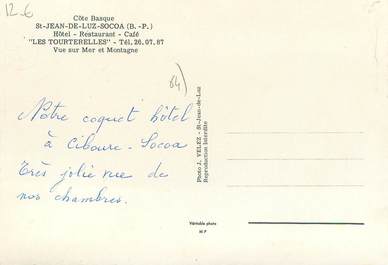 12-6
Côte Basque
St-JEAN-DE-LUZ-SOCOA (B.-P.)
Hôtel - Restaurant - Café
"LES TOURTERELLES" - Tél. 26.07.87
Vue sur Mer et Montagne
64)
Notre coquet hôtel
à Ciboure - Socoa
Très jolie vue de
nos chambres.
Photo J. VELEZ - St-Jean-de-Luz
Reproduction Interdite
Véritable photo
M P